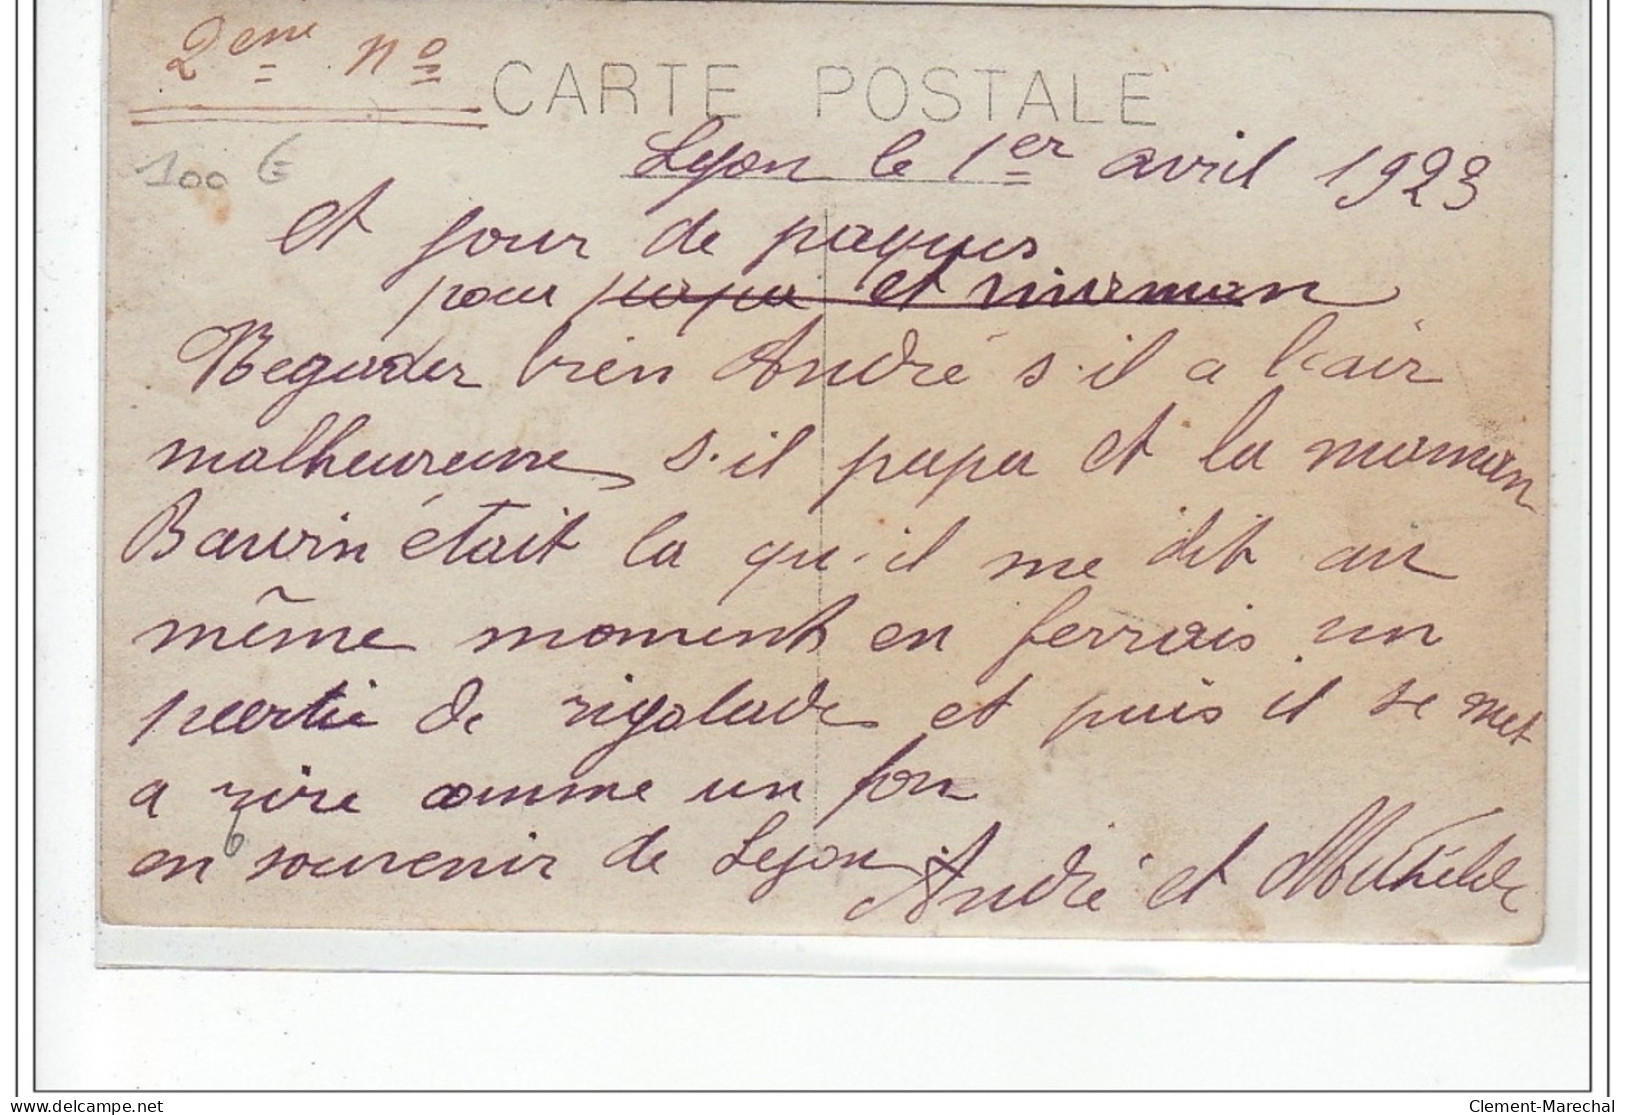 2eme no
CARTE POSTALE
100 €
Lyon le 1er avril 1923
et jour de paques
pour papa et maman
Regarder bien André s'il a l'air
malheureux s'il papa et la maman
Bauvin était la qu'il me dit on
même moment en ferrais un
partie de rigolade et puis il se met
a rire comme un fou
en souvenir de Lyon André et Mathilde
Clement-Marechal